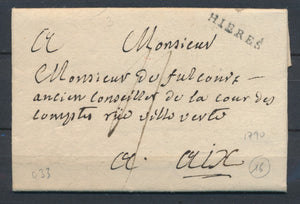 HIERES
A Monsieur
Monsieur de fulconis
ancien conseiller de la cour des
comptes rüe ville verte
1790
A. aix
16